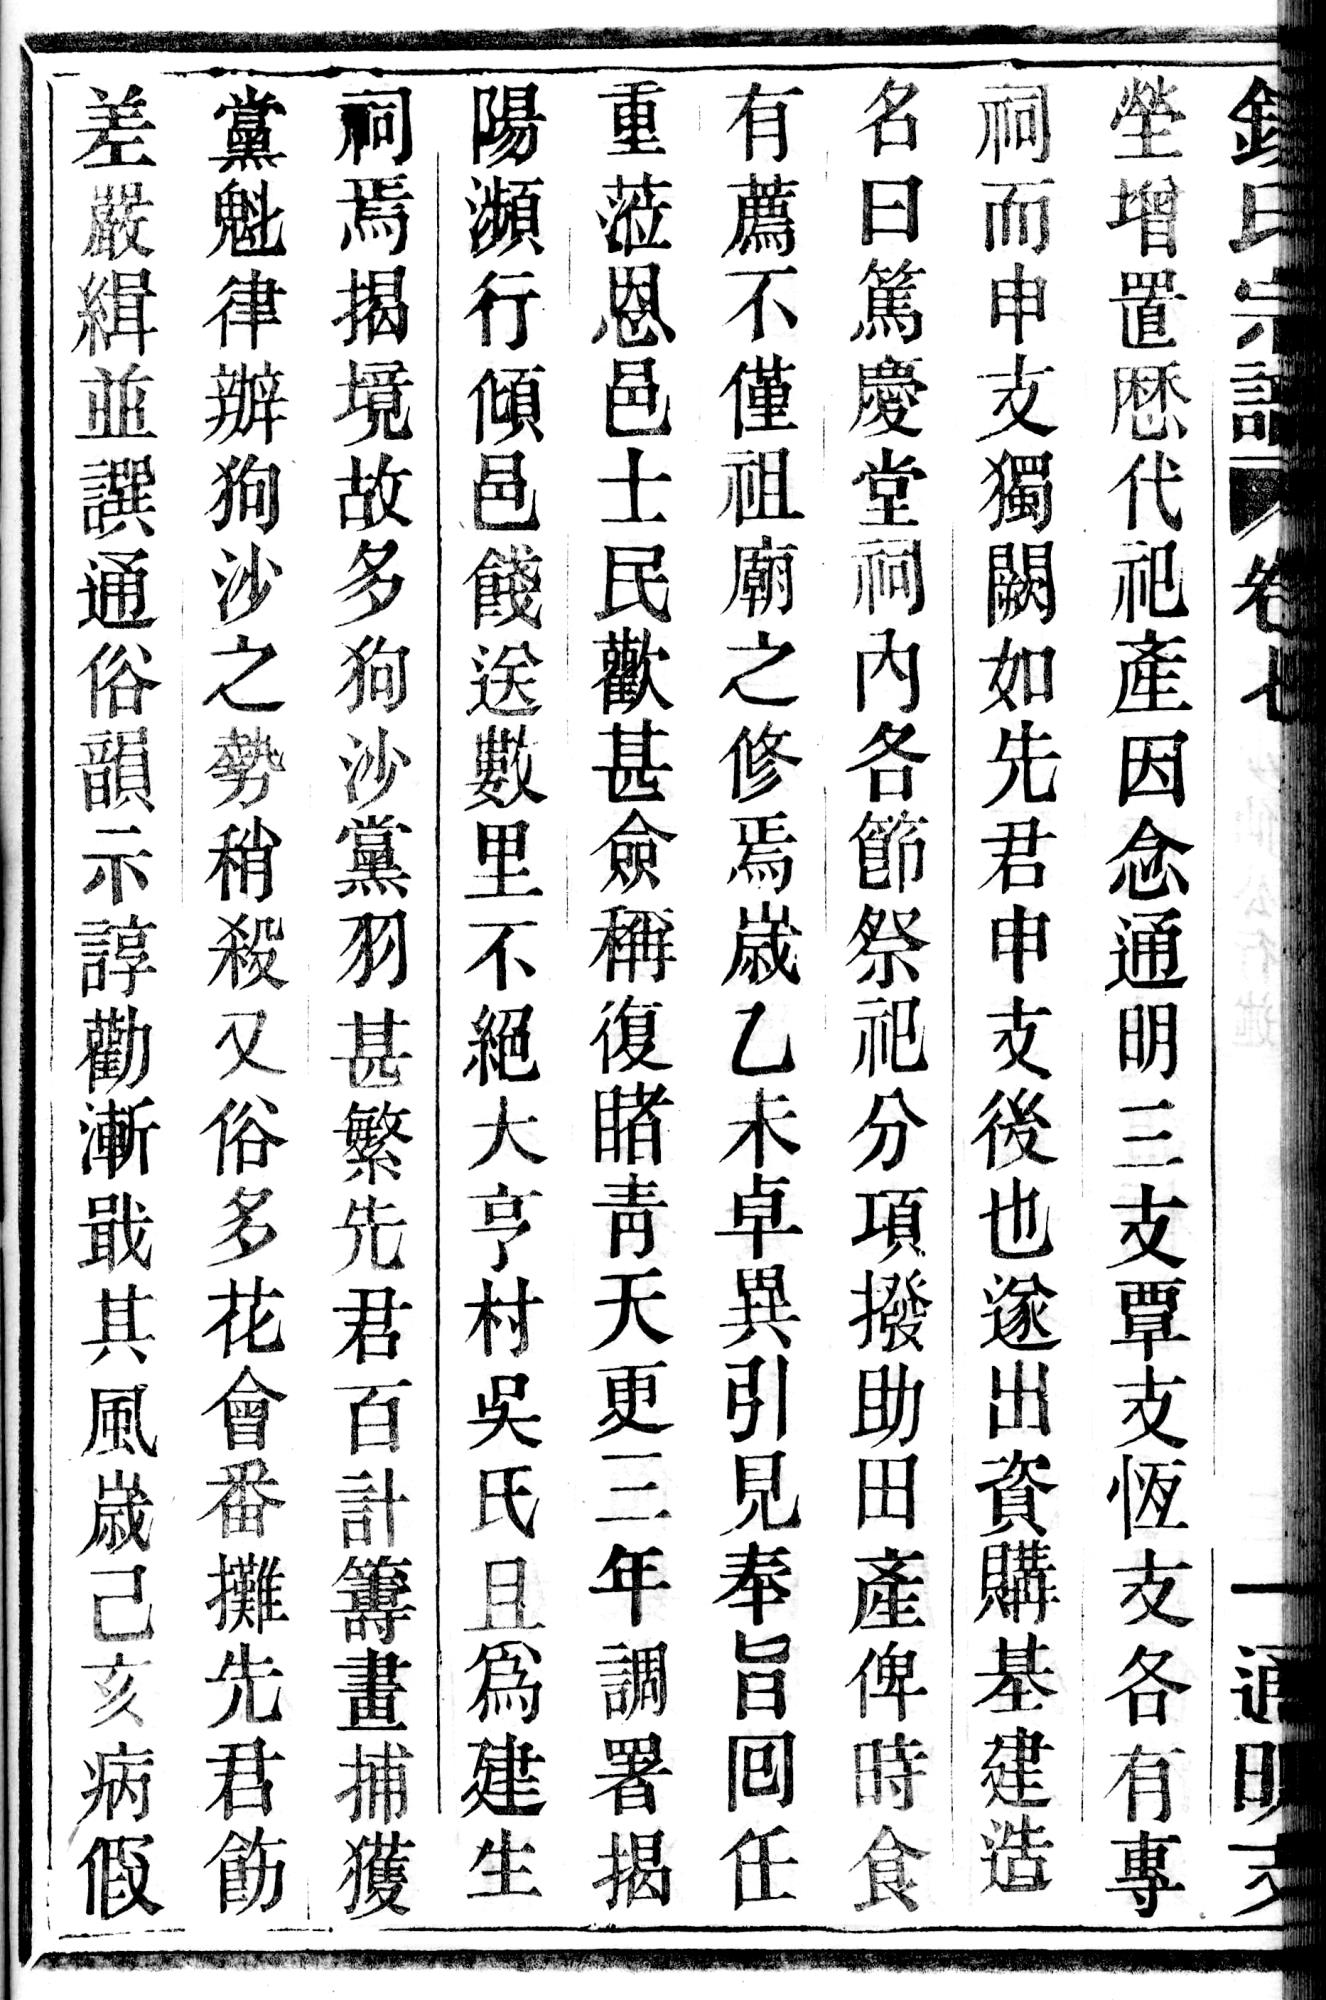 氏宗譜 卷七 一 通明支
塋增置歷代祀產因念通明三支覃支恆支各有專
祠而申支獨闕如先君申支後也遂出資購基建造
名曰篤慶堂祠內各節祭祀分項撥助田產俾時食
有薦不僅祖廟之修焉歲乙未卓異引見奉旨回任
重蒞恩邑士民歡甚僉稱復睹青天更三年調署揭
陽瀕行傾邑餞送數里不絕大亨村吳氏且爲建生
祠焉揭境故多狗沙黨羽甚繁先君百計籌畫捕獲
黨魁律辦狗沙之勢稍殺又俗多花會番攤先君飭
差嚴緝並譔通俗韻示諄勸漸戢其風歲己亥病假